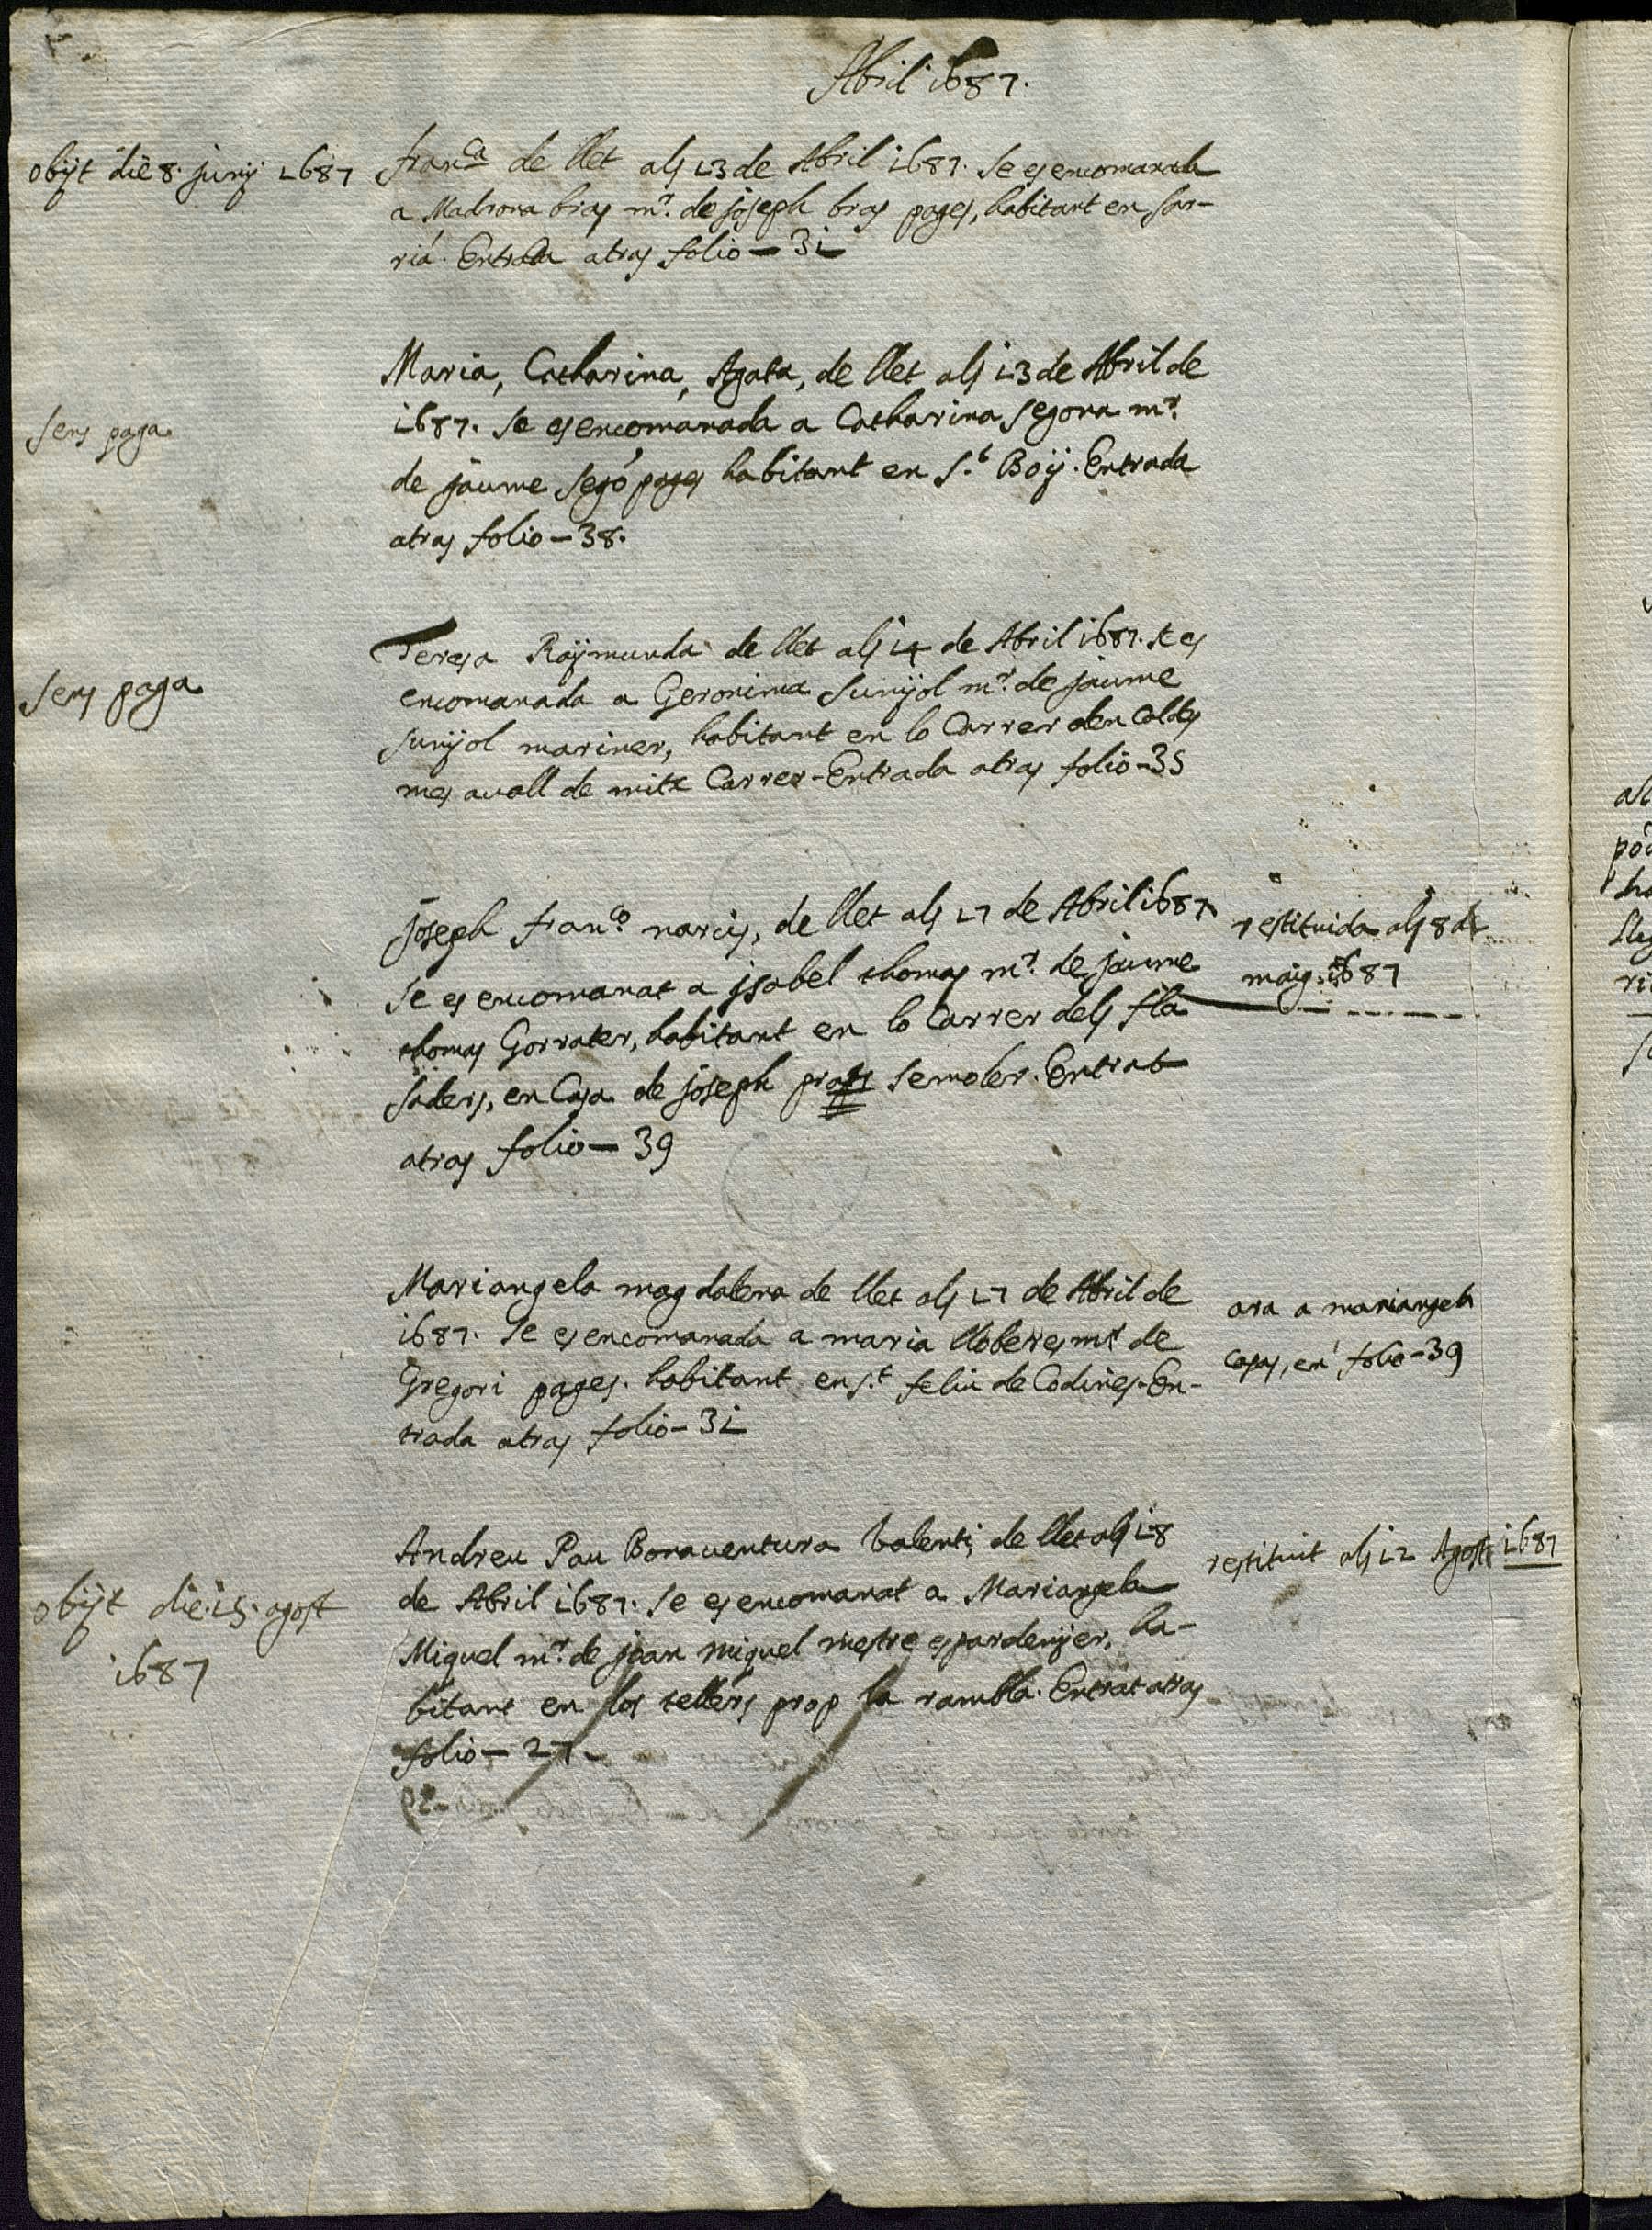 Abril 1687.
obijt die 8. junij 1687
fran.ca de llet als 13 de Abril 1687. Se es encomanada
a Madrona bras m.r de joseph bras pages, habitant en Sar-
riá. Entrada atras folio - 31
Sens paga
Maria, Catharina, Agata, de llet als 13 de Abril de
1687. Se es encomanada a Catharina Segona m.r
de jaume Segó pages habitant en S.t Boij. Entrada
atras folio - 38.
Sens paga
Teresa Raijmunda de llet als 14 de Abril 1687. Se es
encomanada a Geronima Sunijol m.r de jaume
Sunijol mariner, habitant en lo Carrer den Coldes
mes avall de mitx Carrer - Entrada atras folio - 35
joseph fran.co narcis, de llet als 17 de Abril 1687.
Se es encomanat a jsabel thomas m.r de jaume
thomas Gorrater, habitant en lo Carrer dels fla
saders, en Casa de joseph prats Semoler. Entrat
atras folio - 39
restituida als 8 de
maig. 1687
Mariangela magdalena de llet als 17 de Abril de
1687. Se es encomanada a maria lloberes m.r de
Gregori pages. habitant en S.t feliu de Codines. En-
trada atras folio - 31
ara a mariangela
Casas, en folio - 39
obijt die. 15. agost
1687
Andreu Pau Bonaventura Valenti, de llet als 18
de Abril 1687. Se es encomanat a Mariangela
Miquel m.r de joan miquel mestre espardenijer, ha-
bitant en los tellers prop la rambla. Entrat atras
folio - 27 -
restituit als 12 Agost 1687